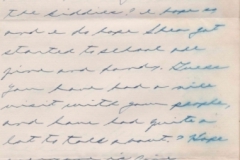 the kiddies I do hope so
and I do hope Shea get
started to school are
fine and handy. Guess
You have had a nice
visit with your people,
and have had quite a
lot to talk about. I Hope